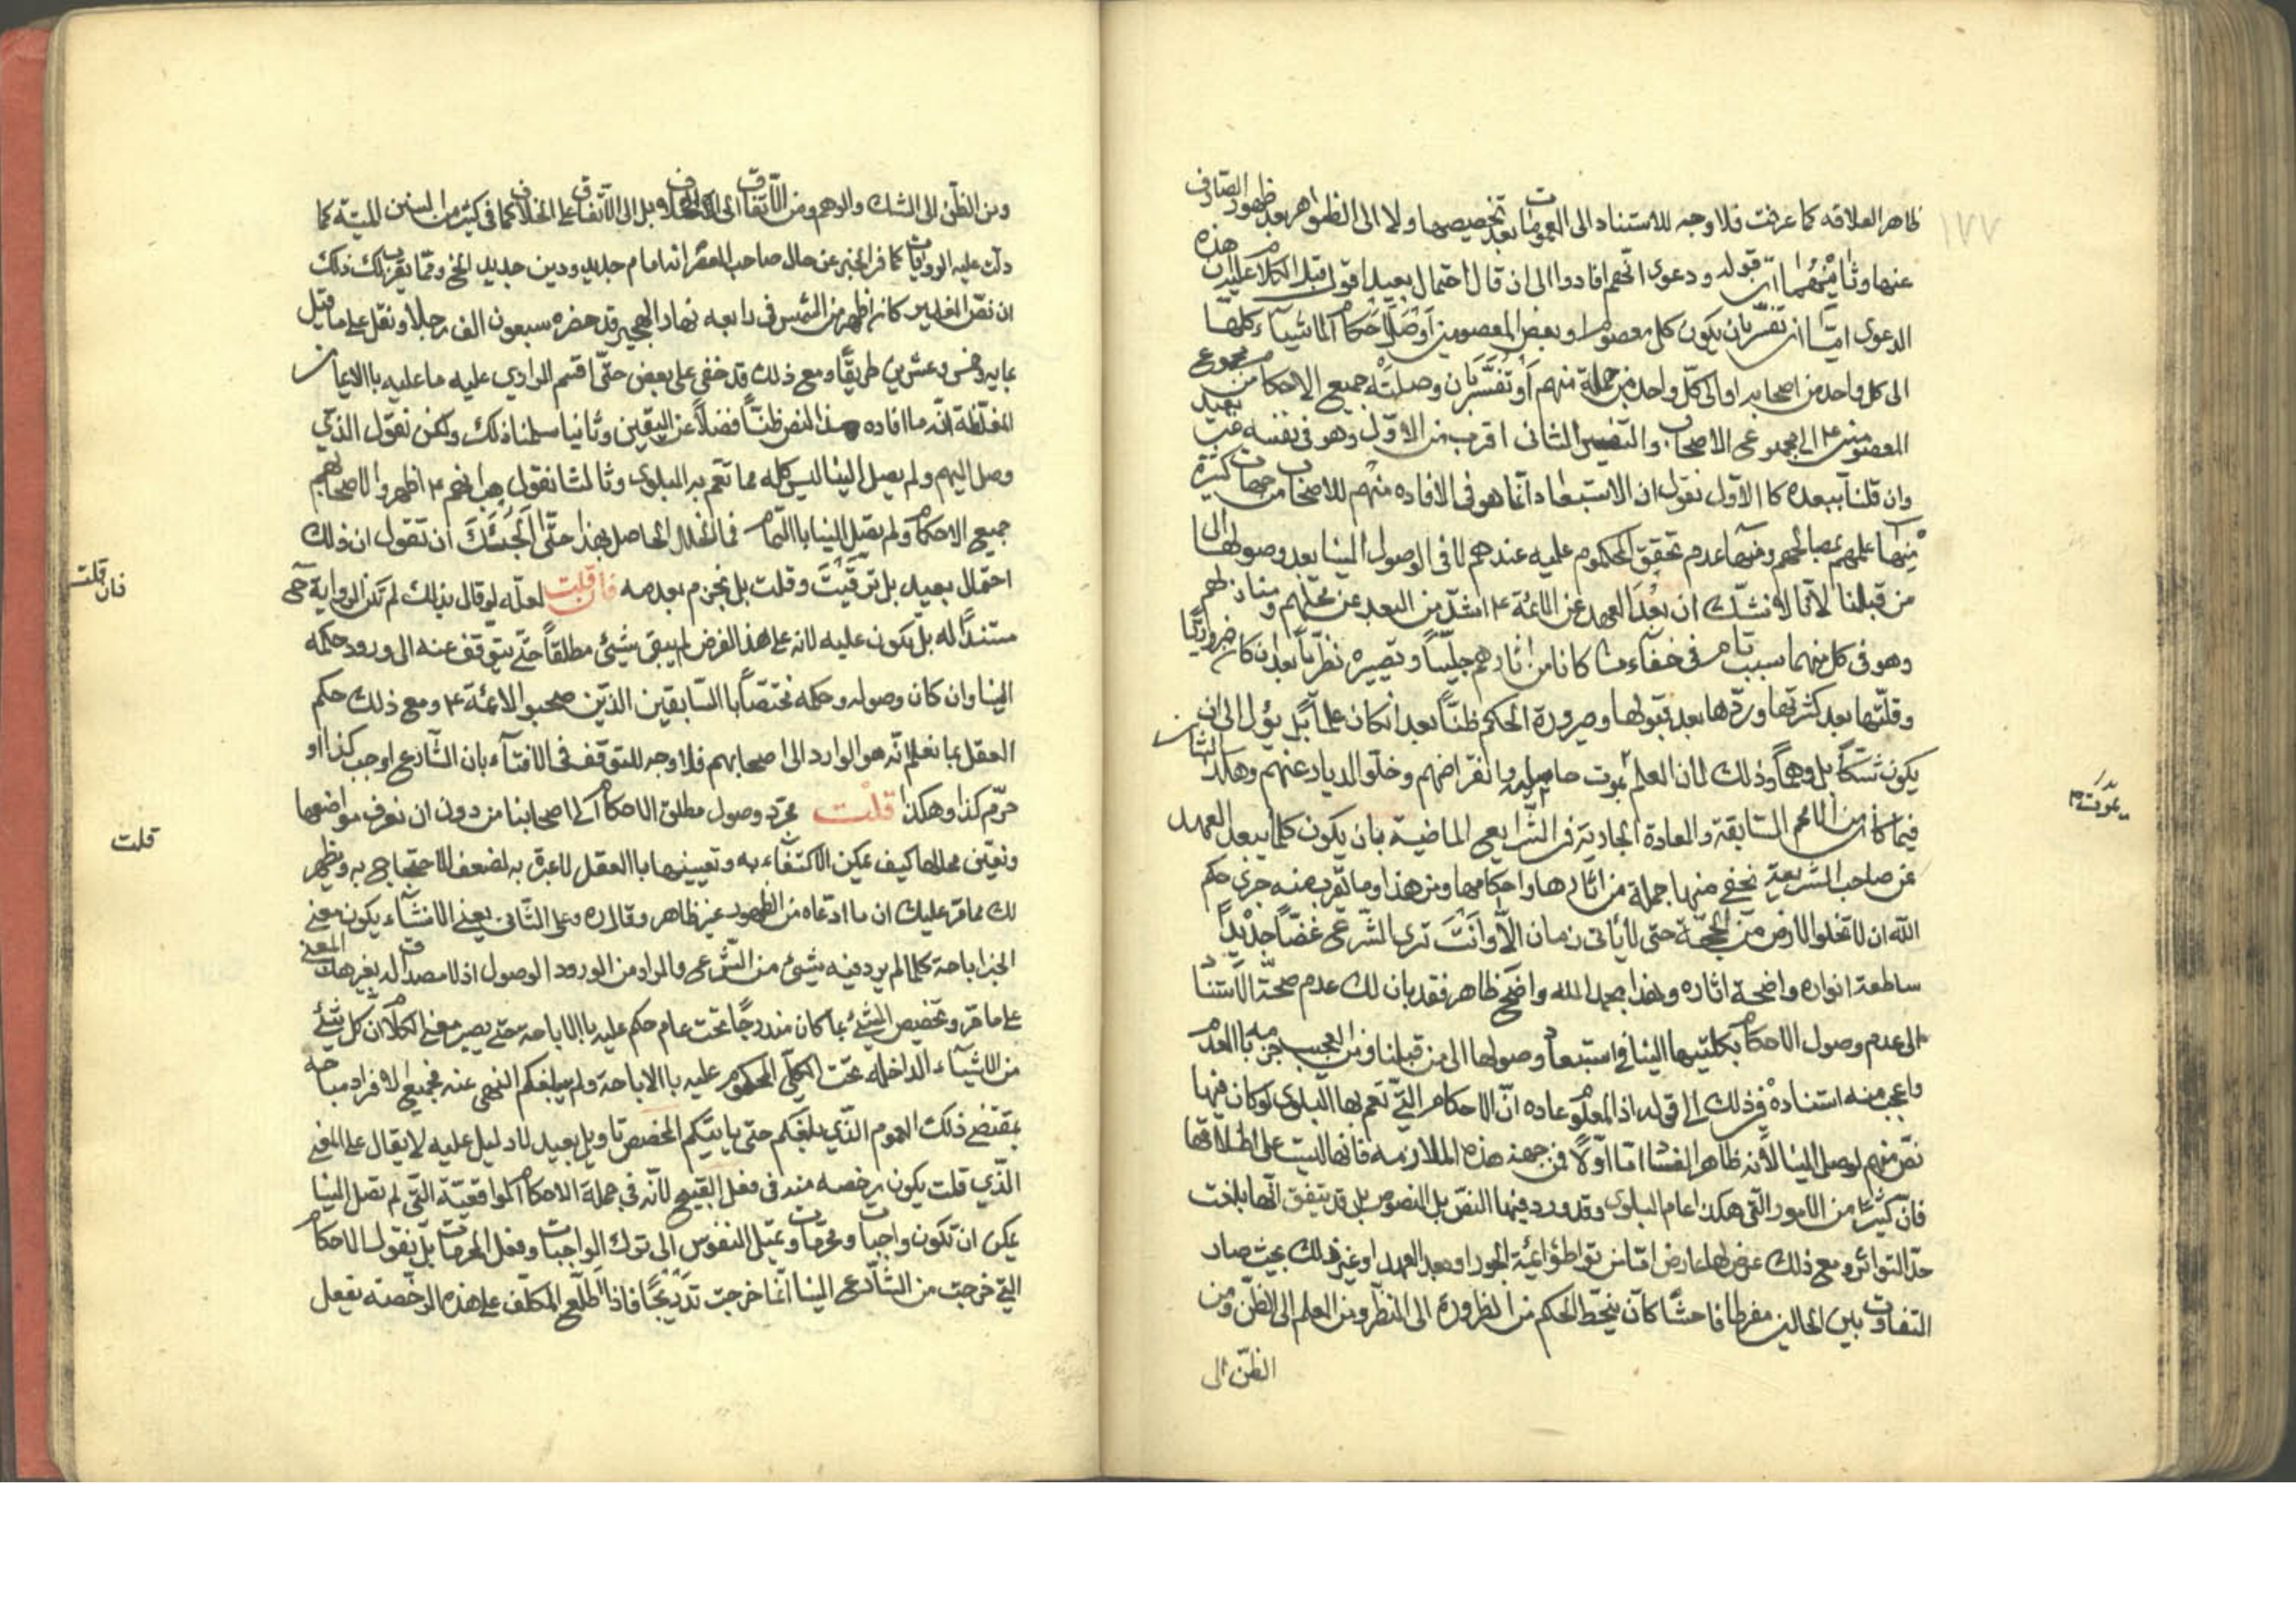 ١٧٧
ظاهر العلاقه كما عرفت فلا وجه للاستناد الى العمومات بعد تخصيصها ولا الى الظواهر بعد ظهور الصارف
عنها وثامنهما ان قوله ودعوى انهم افادوا الى ان قال احتمال بعيد اقول قبل الكلام عليه ان هذه
الدعوى امّا ان تفسّر بان يكون كل معصوم او بعض المعصومين اوصل احكام الاشياء كلها
الى كل واحد من اصحابه او الى كلّ واحد من جملة منهم او تفسّر بان وصلت جميع الاحكام من مجموع
المعصومين ع الى مجموع الاصحاب والتفسير الثانى اقرب من الاوّل وهو فى نفسه غير بعيد
وان قلنا ببعده كالاوّل نقول ان الاستبعاد انما هو فى الافاده منهم للاصحاب من جهات كثيرة
منها علمهم بمصالحهم ومنها عدم تحقق المحكوم عليه عندهم لا فى الوصول الينا بعد وصولها الى
من قبلنا لانا لا نشكّ ان بُعد العهد عن الائمة ع اشدّ من البعد عن محلهم ومنازلهم
وهو فى كل منهما سبب تام فى خفاء ما كانا من اثارهم جليّاً وتصيره نظريّاً بعد ان كان ضروريّا
وقلّتها بعد كثرتها وردّها بعد قبولها وصيرورة الحكم ظنّاً بعد ان كان علماً بل يؤل الى ان
يكون شكّاً بل وهماً وذلك لان العلم يموت حامليه وانقراضهم وخلّو الديار عنهم وهكذا الشان
فيما كان من الامم السّابقة والعادة الجارية فى الشّرايع الماضية بان يكون كلما يبعد العهد
عن صاحب الشريعة يخفى منها جملة من اثارها واحكامها ومن هذا وما تقرب منه جرى حكم
اللّه ان لا تخلوا الارض من الحجّة حتى لا يأتى زمان الّا وانت ترى الشّرع غضّاً جديداً
ساطعة انواره واضحة اثاره وهذا بحمد اللّه واضح ظاهر فقد بان لك عدم صحّة الاستناد
الى عدم وصول الاحكام بكليتيها الينا فى استبعاد وصولها الى من قبلنا ومن العجيب جزمه بالعدم
واعجب منه استناده فى ذلك الى قوله اذ المعلوم عاده انّ الاحكام التى تعم بها البلوى لو كان فيها
نصّ منهم لوصل الينا لانه ظاهر الفساد امّا اوّلاً فمن جهة هذه الملازمه فانها ليست على اطلاقها
فانّ كثيراً من الامور التّى هكذا عام البلوى وقد ورد فيها النصّ بل النصوص بل قد يتفق انها بلغت
حدّ التواتر ومع ذلك عرض لها عارض امّا من تواطؤ ائمة الجور او بعد العهد او غير ذلك بحيث صار
التفاوت بين الحالين مفرطا فاحشاً كان ينحّط الحكم من الظرورة الى النظر ومن العلم الى الظنّ ومن
الظنّ الى
يموت م
ومن الظنّ الى الشك والوهم ومن الاتّفاق الى الخلاف بل الى الاتّفاق على الخلاف كما فى كثير من السنن الميّتة كما
دلّت عليه الروايات كما فى الخبر عن حال صاحب العصر انه امام جديد ودين جديد الخ وممّا يقرب لك ذلك
ان نصّ الغدير كان اظهر من الشمس فى رابعه نهار الهجير قد حضره سبعون الف رجلا ونقل على ما قيل
بمايه وخمس وعشرين طريقاً ومع ذلك قد خفى على بعض حتّى اقسم الراوي عليه ما عليه بالايمان
المغلّظة انّه ما افاده هذا النص ظنّاً فضلاً عن اليقين وثانيا سلمنا ذلك ولكن نقول الذّى
وصل اليهم ولم يصل الينا ليس كله مما تعم به البلوى وثالثا نقول هب انهم ع اظهروا لاصحابهم
جميع الاحكام ولم يصل الينا بالتمام فما الخلل الحاصل بهذا حتّى الجئك ان تقول ان ذلك
احتمال بعيد بل ترقّيت وقلت بل نجزم بعدمه فان قلت لعلّه لو قال بذلك لم تكن الرواية حجة
مستنداً له بل يكون عليه لانه على هذا الفرض لم يبق شيئ مطلقاً حتّى يتوقف عنه الى ورود حكمه
الينا وان كان وصوله وحكمه مختصّاً بالسّابقين الذّين صحبوا الائمة ع ومع ذلك حكم
العقل بما نعلم انّه هو الوارد الى اصحابهم فلا وجه للتوقف فى الافتاء بان الشارع اوجب كذا او
حرّم كذا وهكذا قلت مجرّد وصول مطلق الاحكام الى اصحابنا من دون ان نعرف مواضعها
ونعيّن محالها كيف يمكن الاكتفاء به وتعيينها بالعقل لا عبرة به لضعف الاحتجاج به ويظهر
لك مما قرّ عليك ان ما ادّعاه من الظهور غير ظاهر وقال ره وعلى الثّانى يعنى الانشاء يكون معنى
الخبر اباحة كلما لم يرد فيه شيئ من الشّرع والمراد من الورود الوصول اذ لا مصداق له بغير هذا المعنى
على ما مر وتخصيص الشيئ بما كان مندرجاً تحت عام حكم عليه بالاباحة حتى يصير معنى الكلام ان كل شيئ
من الاشياء الداخلة تحت الكلّى المحكوم عليه بالاباحة ولم يبلغكم النهى عنه فجميع افراد مباحه
بمقتضى ذلك العموم الذّي بلغكم حتى يا يتيكم المخصص تاويل بعيد لا دليل عليه لا يقال على المعنى
الذّي قلت يكون رخصه منه فى فعل القبيح لانّه فى جملة الاحكام الواقعيّة التّى لم تصل الينا
يمكن ان تكون واجبات ومحرمات وتميل النفوس الى ترك الواجبات وفعل المحرمات بل نقول الاحكام
التى خرجت من الشّارع الينا انّما خرجت تدريجاً فاذا اطلّع المكلّف على هذه الرخّصة يفعل
فان قلت
قلت